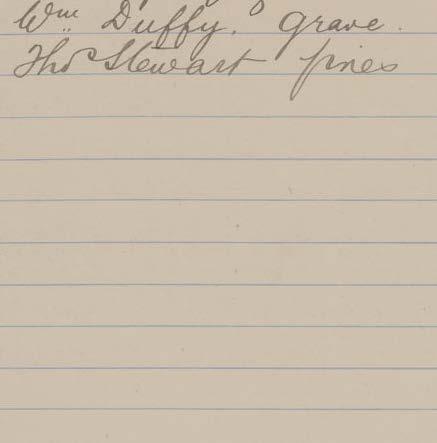 Wm Duffy. grave.
Thos Stewart fines